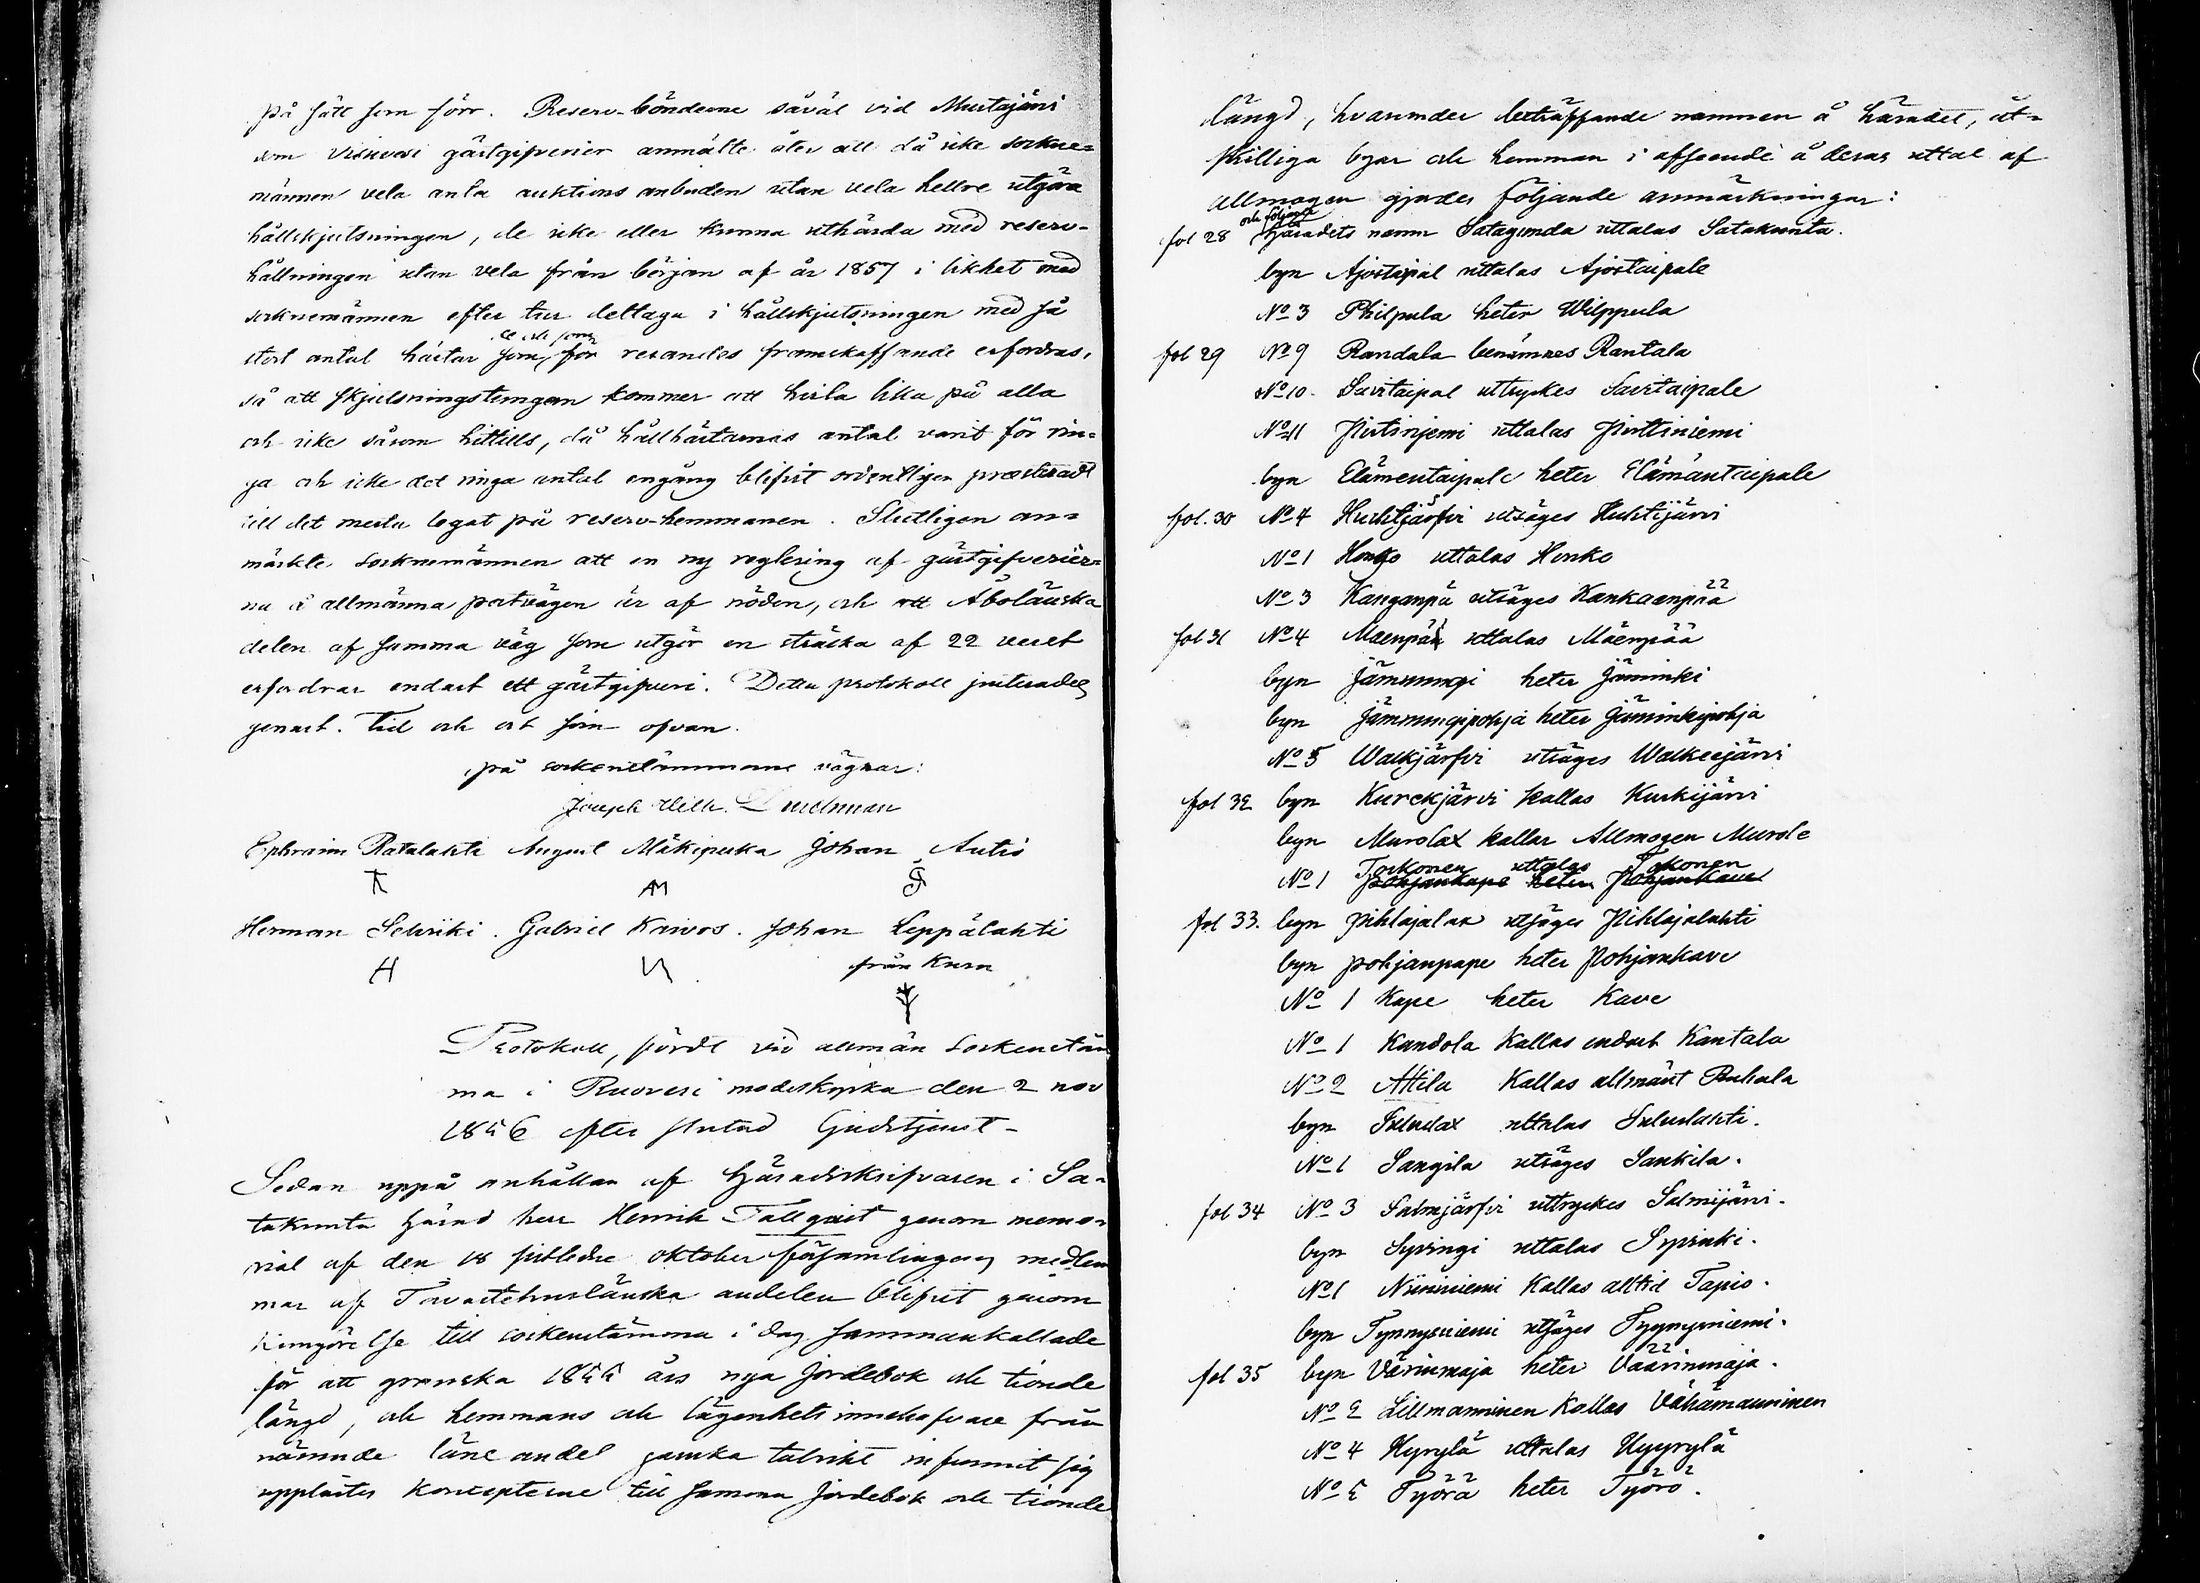 på sätt som förr. Reserv-bönderne såväl vid Mustajärvi
som Visuvesi gästgifverier anmälte åter att då icke sockne-
männen vela anta auktions anbuden utan vela hellre utgöra
hållskjutsningen, de icke eller kunna uthärda med reserv-
hållningen utan vela från början af år 1857 i likhet med
socknemännen efter tur deltaga i hållskjutsningen med så
stort antal hästar som för resandes framskaffande erfordras,
så att skjutsningstungan kommer att hvila lika på alla
och icke såsom hittills, då hållhästarnas antal varit för rin-
ga och icke det ringa antal engång blifvit ordentligen presteradt
till det mesta legat på reserv-hemmanen. Slutligen an-
märkte socknemännen att en ny reglering af gästgifverier-
na å allmänna postvägen är af nöden, och att Åboländska
delen af samma väg som utgör en sträcka af 22 verst
erfordrar endast ett gästgifveri. Detta protokoll justerades
genast. Tid och ort som ofvan.
på sockenstämmans vägnar:
Joseph Wilh. Lindman
Ephraim Ratalahti August Mäkipukka Johan Autio
AM
Herman Seluiki. Gabriel Kaivos. Johan Leppälahti
H från Kuru
Protokoll, fördt vid allmän Sockenstäm
ma i Ruovesi moderkyrka den 2 nov
1856 efter slutad Gudstjenst-
Sedan uppå anhållan af Häradsskrifvaren i Sa-
takunta härad herr Henrik Tallqvist genom memo-
rial af den 18 sistledne oktober församlingens medlem
mar af Tavastehuslänska andelen blifvit genom
kungörelse till sockenstämma i dag sammankallade
för att granska 1855 års nya Jordebok och tionde
längd, och hemmans och lägenhets innehafvare från
nämnde läns andel ganska talrikt infunnit sig
upplästes koncepterne till samma Jordebok och tionde
längd, hvarunder beträffande namnen å häradet, åt-
skilliga byar och hemman i afseende å deras uttal af
allmogen gjordes följande anmärkningar:
och följande
fol 28 Häradets namn Satagunda uttalas Satakunta.
byn Ajostaipal uttalas Ajostaipale
No 3 Philpula heter Wilppula
fol 29 No 9 Randala benämnes Rantala
No 10. Savitaipal uttryckes Savitaipale
No 11 Pirtinjemi uttalas Pirttiniemi
byn Elämentaipale heter Elämäntaipale
fol. 30 No 4 Huhtjärfvi utsäges Huhtijärvi
No 1 Hongo uttalas Honko
No 3 Kanganpä utsäges Kankaanpää
fol 31 No 4 Maenpää uttalas Mäenpää
byn Jämmingi heter Jäminki
byn Jämmingipohja heter Jäminkipohja
No 5 Walkjärfvi utsäges Walkeejärvi
fol 32 byn Kurckjärvi kallas Kurkijärvi
byn Murolax kallar Allmogen Murole
No 1 Torkonen uttalas Tokonen
Pohjankape heter Pohjankave
fol 33. byn Pihlajalax utsäges Pihlajalahti
byn Pohjanpape heter Pohjankave
No 1 Kape heter Kave
No 1 Kandola Kallas endast Kantala
No 2 Attila Kallas allmänt Ruhala
byn Salulax uttalas Salulahti.
No 1 Sangila utsäges Sankila.
fol 34 No 3 Salmjärfvi uttryckes Salmijärvi.
byn Syvingi uttalas Syvinki.
No 1 Niininiemi Kallas alltid Tapio.
byn Tynnyrniemi utsäges Tyynyniemi.
fol 35 byn Värinmaja heter Väärinmaja.
No 2 Lillmanninen Kallas Vähämanninen
No 4 Hyrylä uttalas Hyyrylä
No 5 Työrä heter Työrö.